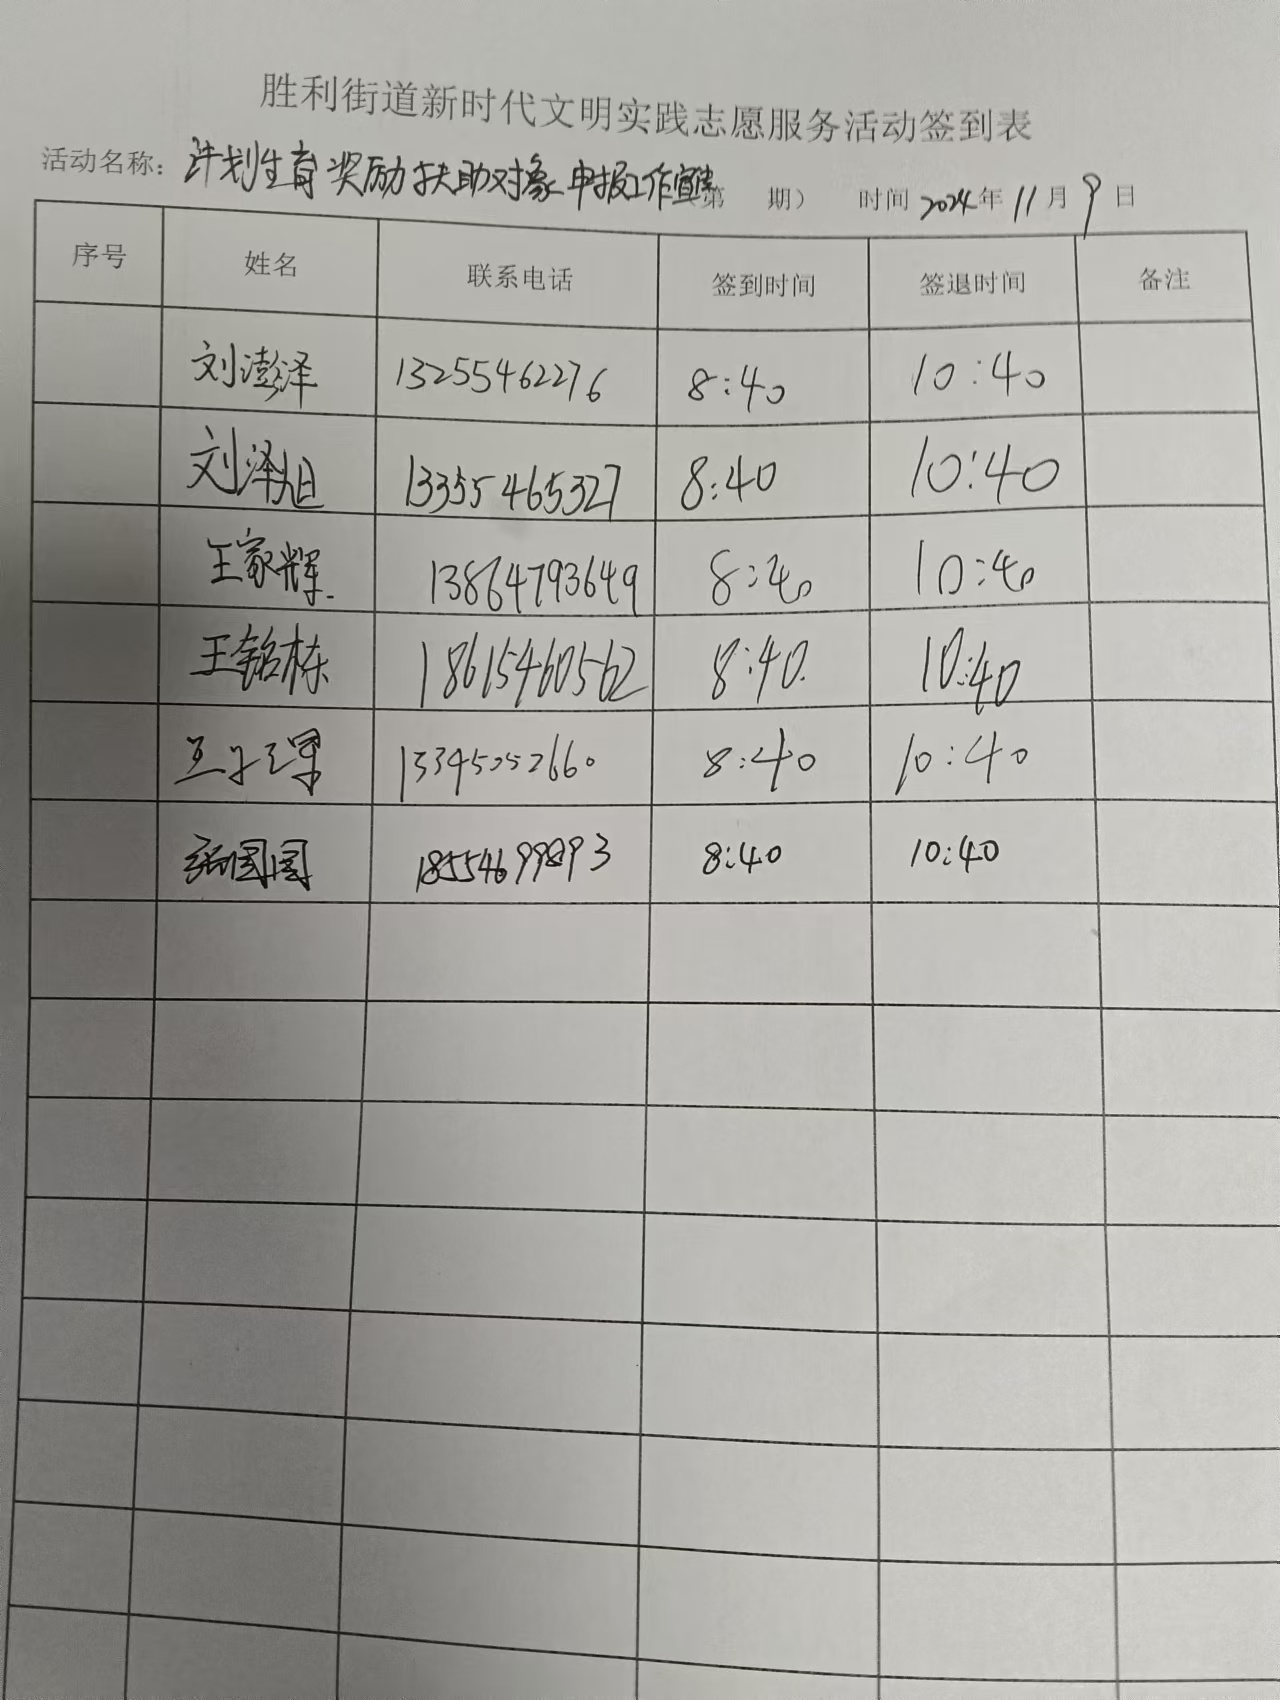 胜利街道新时代文明实践志愿服务活动签到表
活动名称：计划生育奖励扶助对象申报工作宣传第 期） 时间 2024年 11月 9日
序号 姓名 联系电话 签到时间 签退时间 备注
刘澎泽 13255462276 8:40 10:40
刘泽旭 13355465327 8:40 10:40
王家辉 13864793649 8:40 10:40
王铭栋 18615460562 8:40 10:40
13345052660 8:40 10:40
张围围 18554699893 8:40 10:40